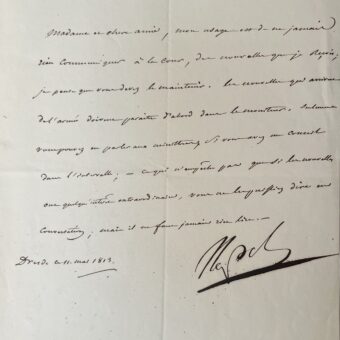 Madame et chere amie, mon usage est de ne jamais
rien communiquer à la cour, des nouvelles que je reçois,
je pense que vous devez le maintenir. Les nouvelles qui arrivent
de l'armé doivent paraitre d'abord dans le moniteur.
en parler aux ministres, si vous avez un conseil
dans l'intervalle; – ce qui n'empêche pas que si les nouvelles
ont quelqu'intérêt extraordinaire, vous ne le puissiez dire en
conversation; mais il ne faut jamais rien lire. –
Dresde le 11 mai 1813.